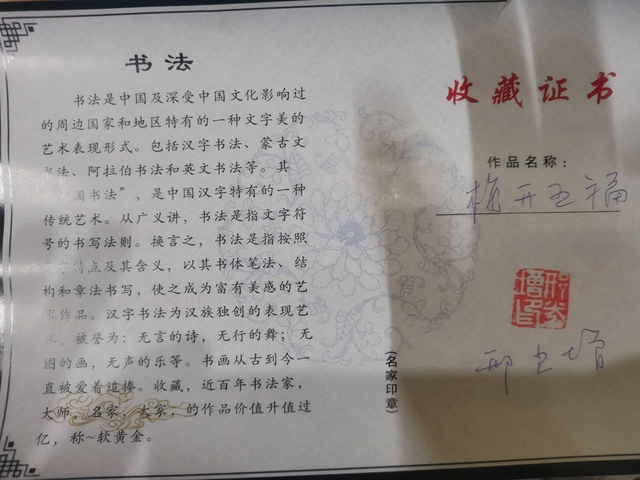 书法
书法是中国及深受中国文化影响过
的周边国家和地区特有的一种文字美的
艺术表现形式。包括汉字书法、蒙古文
书法、阿拉伯书法和英文书法等。其
国书法”，是中国汉字特有的一种
传统艺术。从广义讲，书法是指文字符
号的书写法则。换言之，书法是指按照
特点及其含义，以其书体笔法、结
构和章法书写，使之成为富有美感的艺
术作品。汉字书法为汉族独创的表现艺
，被誉为：无言的诗，无行的舞；无
图的画，无声的乐等。书画从古到今一
直被爱着追捧。收藏，近百年书法家，
大师，名家，大家，的作品价值升值过
亿，称~软黄金。
收藏证书
作品名称：
梅开五福
(名家印章)